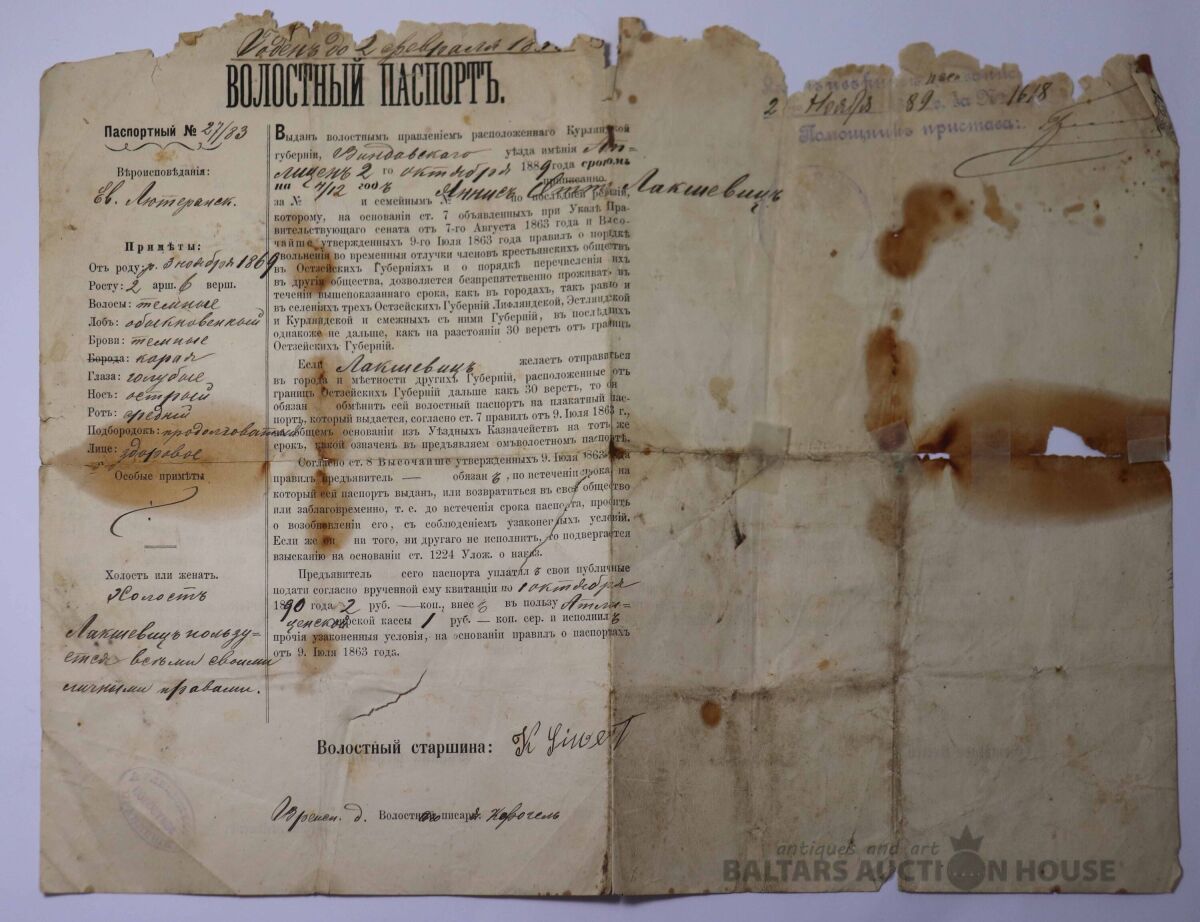 Годенъ до 2 февраля
ВОЛОСТНЫЙ ПАСПОРТЪ.
2 Ноября 89 за № 1618
Помощникъ пристава:
Паспортный № 27/83
Вѣроисповѣданія:
Ев. Лютеранск.
Примѣты:
Отъ роду: р. 3 ноября 1869
Росту: 2 арш. 6 верш.
Волосы: темные
Лобъ: обыкновенный
Брови: темные
Борода: карая
Глаза: голубые
Носъ: острый
Ротъ: средній
Подбородокъ: продолговатый
Лице: здоровое
Особые примѣты
Холостъ или женатъ.
Холостъ
Лакшевицъ пользу-
ется всѣми своими
личными правами.
Выданъ волостнымъ правленіемъ расположеннаго Курляндской
губерніи, Виндавскаго уѣзда имѣнія
2 го октября 1889 года срокомъ
на 4/12 годъ Аннисъ Отто Лакшевицъ
за № и семейнымъ № по послѣдней ревизіи,
которому, на основаніи ст. 7 объявленныхъ при Указѣ Пра-
вительствующаго сената отъ 7-го Августа 1863 года и Высо-
чайше утвержденныхъ 9-го Іюля 1863 года правилъ о порядкѣ
увольненія во временныя отлучки членовъ крестьянскихъ обществъ
въ Остзейскихъ Губерніяхъ и о порядкѣ перечисленія ихъ
въ другія общества, дозволяется безпрепятственно проживать въ
теченіи вышепоказаннаго срока, какъ въ городахъ, такъ равно и
въ селеніяхъ трехъ Остзейскихъ Губерній Лифляндской, Эстляндской
и Курляндской и смежныхъ съ ними Губерній, въ послѣднихъ
однакоже не дальше, какъ на разстояніи 30 верстъ отъ границъ
Остзейскихъ Губерній.
Если Лакшевицъ желаетъ отправиться
въ города и мѣстности другихъ Губерній, расположенные отъ
границъ Остзейскихъ Губерній дальше какъ 30 верстъ, то он
обязан обмѣнить сей волостный паспортъ на плакатный пас-
портъ, который выдается, согласно ст. 7 правилъ отъ 9. Іюля 1863 г.,
на общемъ основаніи изъ Уѣздныхъ Казначействъ на тотъ же
срокъ, какой означенъ въ предъявляемомъ волостномъ паспортѣ.
Согласно ст. 8 Высочайше утвержденныхъ 9. Іюля 1863 года
правилъ предъявитель — обязанъ, по истеченіи срока, на
который сей паспортъ выданъ, или возвратиться въ свое общество
или заблаговременно, т. е. до истеченія срока паспорта, просить
о возобновленіи его, съ соблюденіемъ узаконенныхъ условій.
Если же он ни того, ни другаго не исполнитъ, то подвергается
взысканію на основаніи ст. 1224 Улож. о наказ.
Предъявитель сего паспорта уплатилъ свои публичные
подати согласно врученной ему квитанціи по 1 октября
1890 года 2 руб. — коп., внесъ въ пользу
мірской кассы 1 руб. — коп. сер. и исполнилъ
прочія узаконенныя условія, на основаніи правилъ о паспортахъ
отъ 9. Іюля 1863 года.
Волостный старшина:
Времен. д. Волостного писаря
antiques and art
BALTARS AUCTION HOUSE